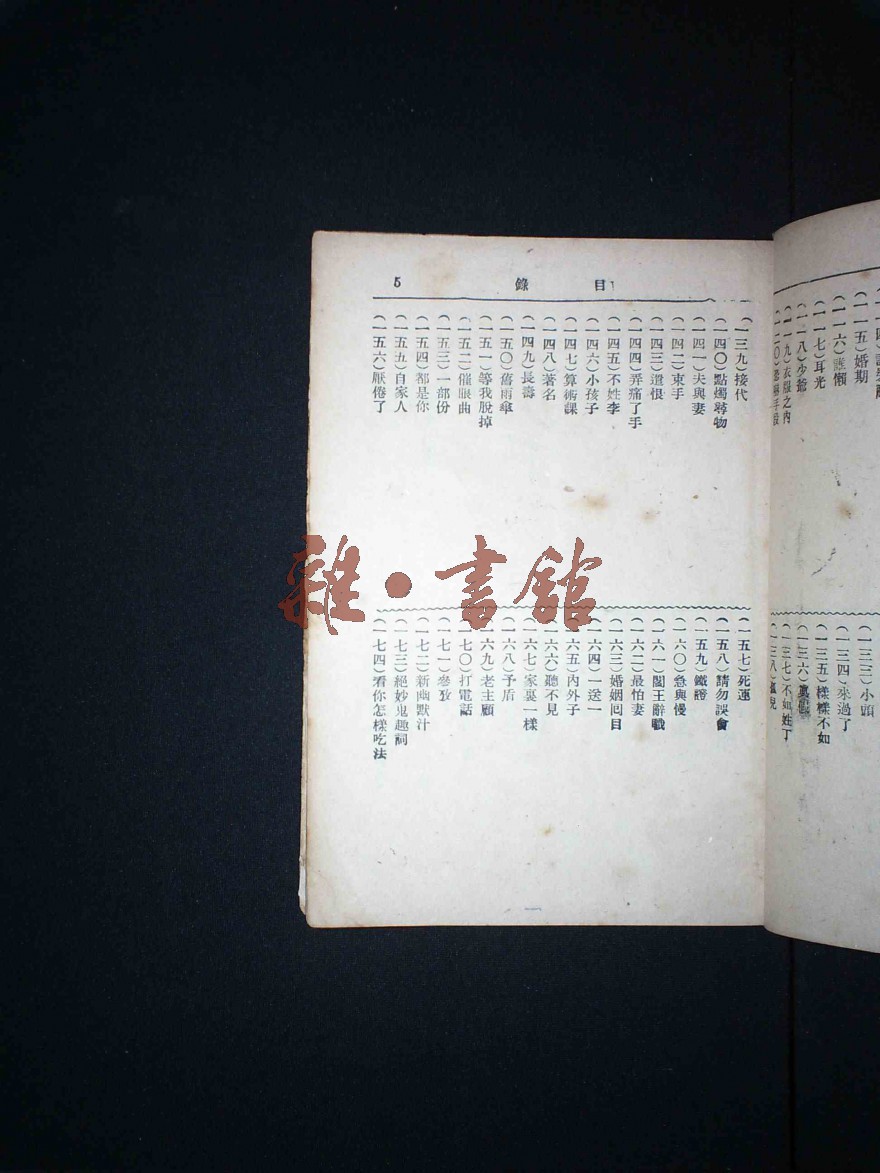 (一一五)婚期
(一一六)誰懶
(一一七)耳光
(一一八)少爺
(一一九)衣服之內
(一三三)小頭
(一三四)來過了
(一三五)樣樣不如
(一三六)
(一三七)不如姓丁
目錄 5
(一三九)接代
(一四〇)點燭尋物
(一四一)夫與妻
(一四二)束手
(一四三)遺恨
(一四四)弄痛了手
(一四五)不姓李
(一四六)小孩子
(一四七)算術課
(一四八)著名
(一四九)長壽
(一五〇)舊雨傘
(一五一)等我脫掉
(一五二)催眠曲
(一五三)一部份
(一五四)都是你
(一五五)自家人
(一五六)厭倦了
(一五七)死運
(一五八)請勿誤會
(一五九)鐵證
(一六〇)急與慢
(一六一)閻王辭職
(一六二)最怕妻
(一六三)婚姻囘目
(一六四)一送一
(一六五)內外子
(一六六)聽不見
(一六七)家裏一樣
(一六八)予盾
(一六九)老主顧
(一七〇)打電話
(一七一)參攷
(一七二)新幽默汁
(一七三)絕妙鬼趣詞
(一七四)看你怎樣吃法
雜·書館